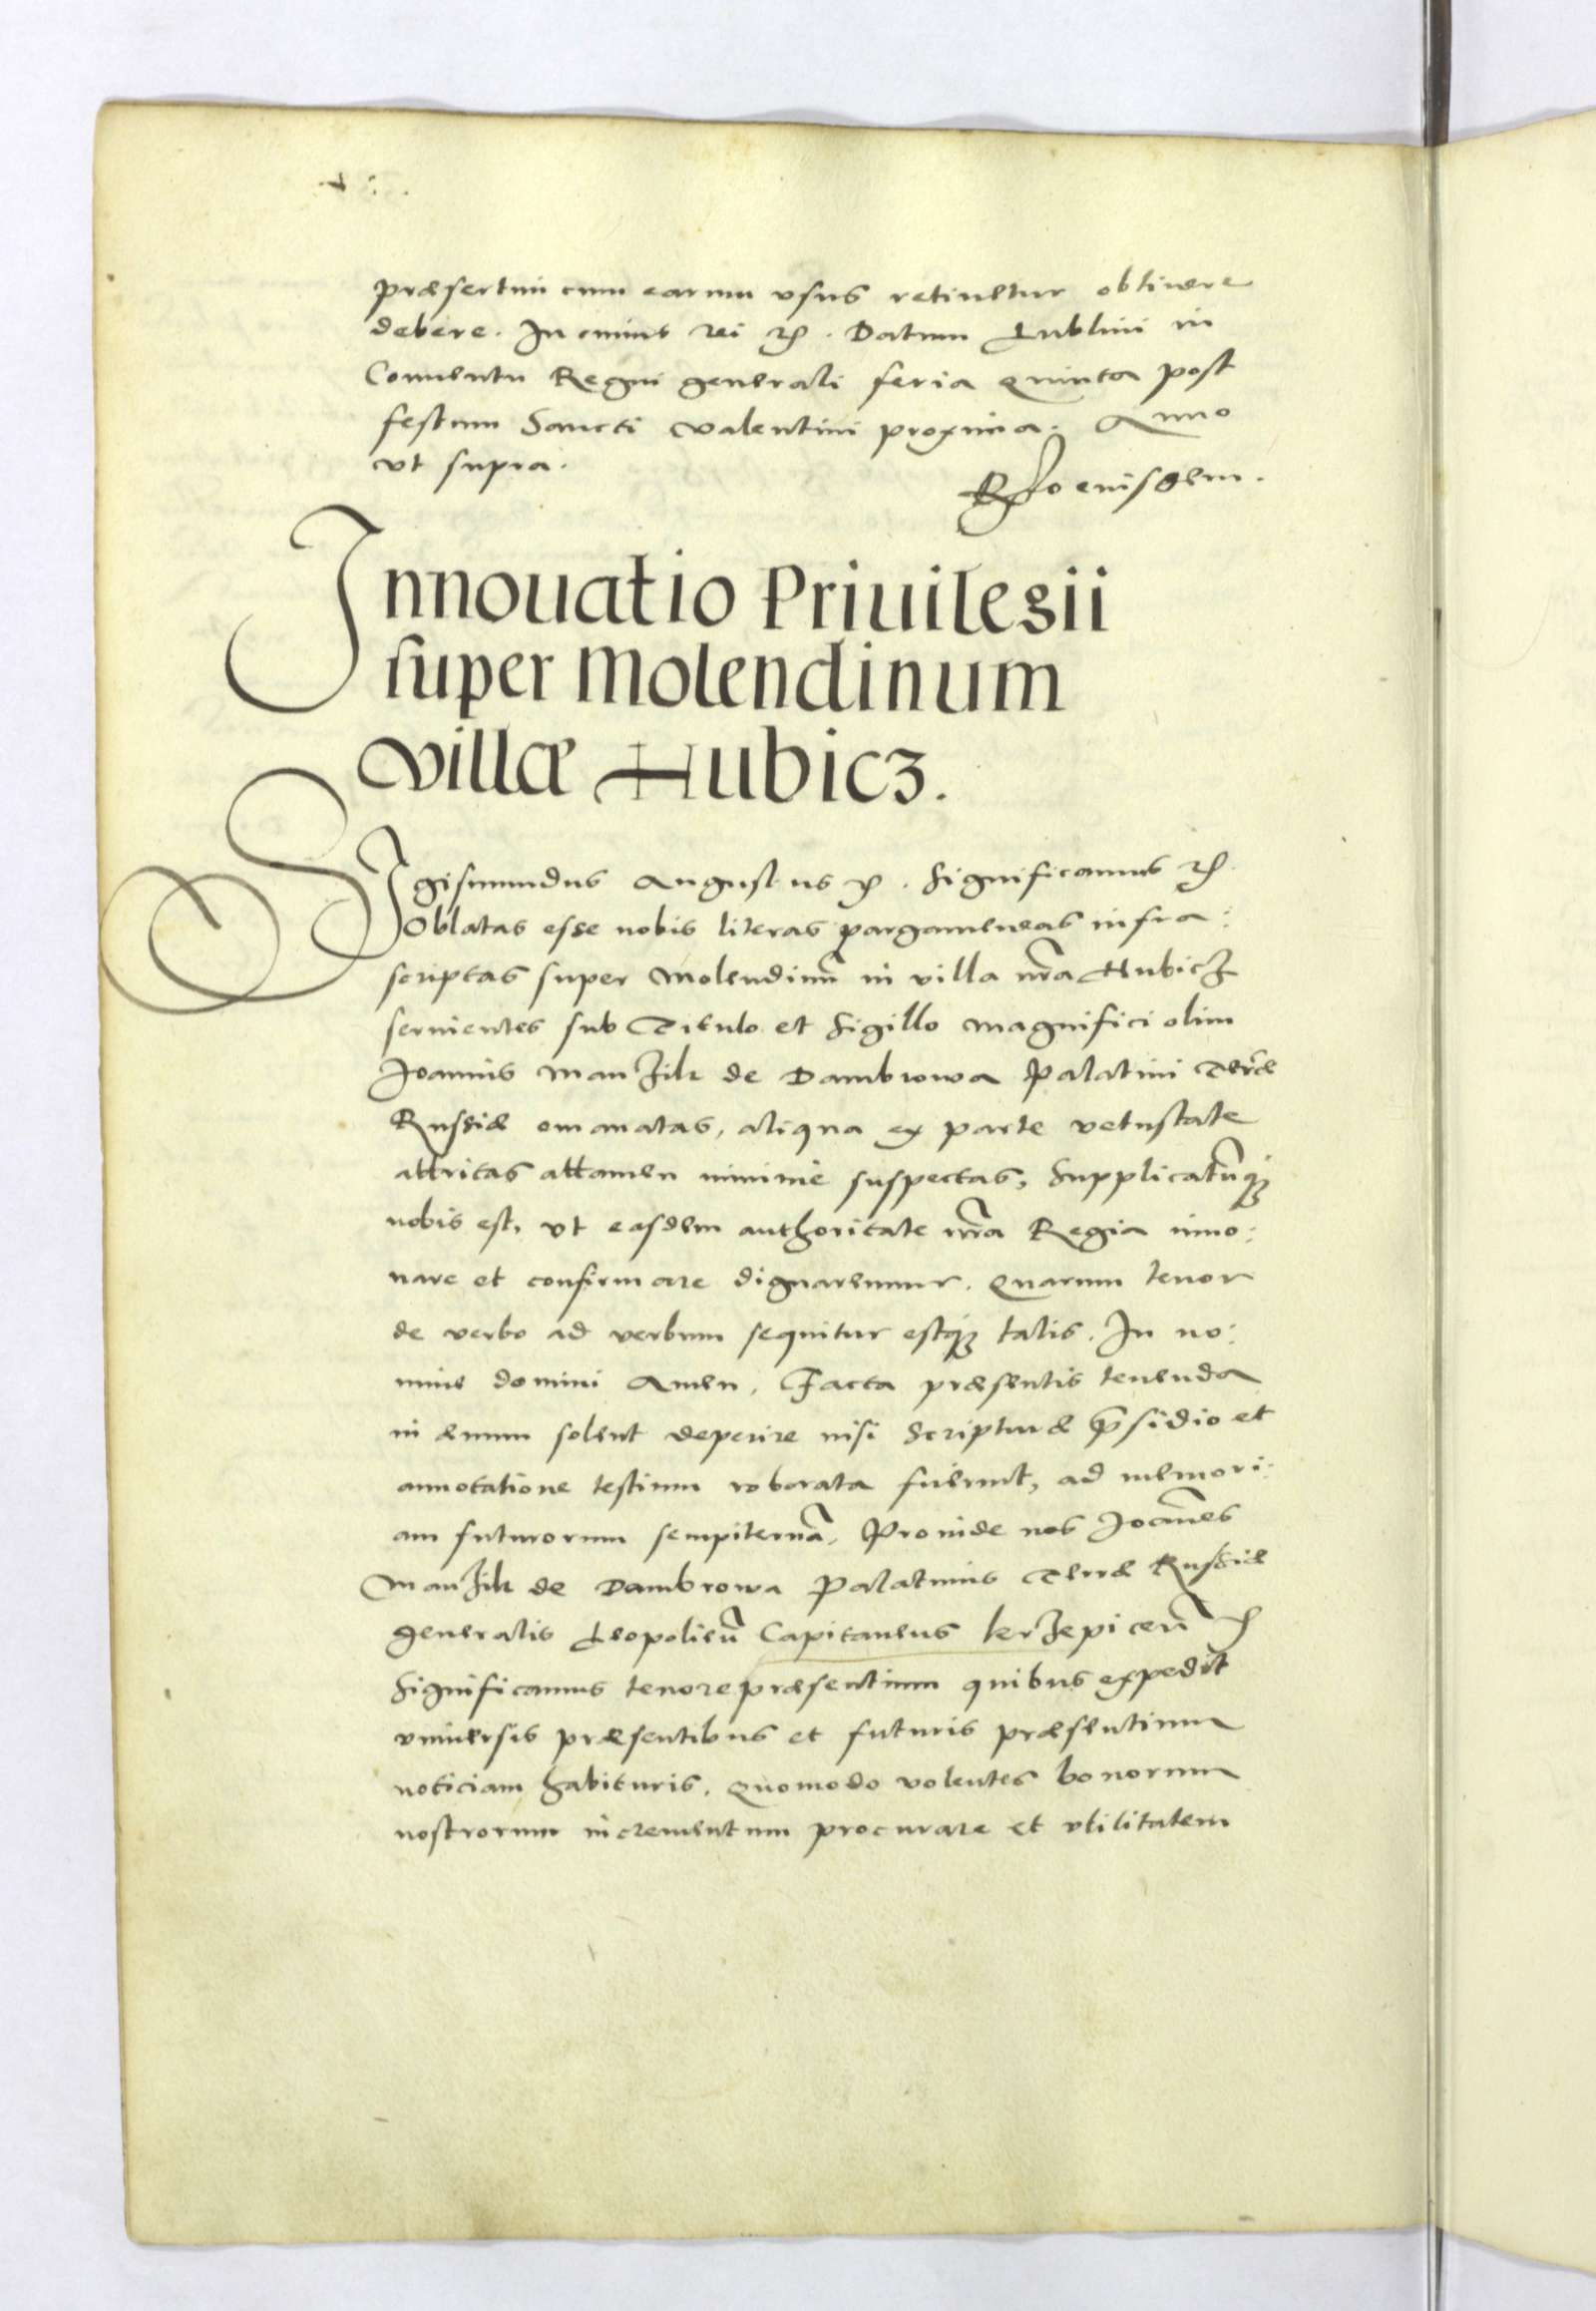 præsertim cum earum vsus retinetur obtinere
debere. In cuius rei &c. Datum Lublini in
Conuentu Regni generali feria Quinta post
festum Sancti Valentini proxima. Anno
vt supra.
eiusdem.
Innouatio Priuilegii
super Molendinum
Villæ Hubicz.
SIgismundus Augustus &c. Significamus &c.
Oblatas esse nobis literas pargameneas infra:
scriptas super Molendinū in villa nr̃a Hubicz
seruientes sub Titulo et Sigillo Magnifici olim
Joannis Manzik de Dambrowa Palatini Terræ
Russiæ emanatas, aliqua ex parte vetustate
attritas attamen minime suspectas, Supplicatūq;
nobis est, vt easdem authoritate nr̃a Regia inno:
uare et confirmare dignaremur. Quarum tenor
de verbo ad verbum sequitur estq; talis. In no:
mine domini Amen. Facta præsentis tenenda
in æuum solent deperire nisi Scripturæ p̄sidio et
annotatione testium roborata fuerint, ad memori:
am futurorum sempiternā. Proinde nos Joānes
Manzik de Dambrowa Palatinus Terræ Russiæ
generalis Leopolieñ Capitaneus Terzepiceñ &c
Significamus tenore præsentium quibus expedit
vniuersis præsentibus et futuris præsentium
noticiam habituris. Quomodo volentes bonorum
nostrorum incrementum procurare et vtilitatem